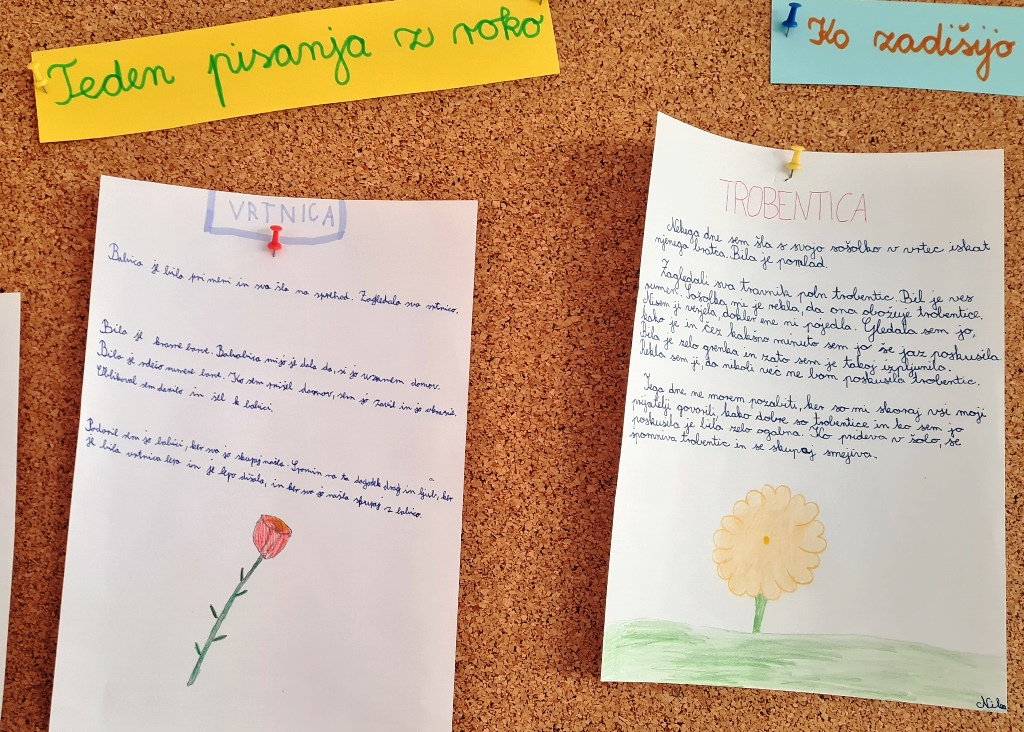 Teden pisanja z roko
Ko zadišijo
VRTNICA
Babica je bila pri meni in sva šla na sprehod. Zagledala sva vrtnico.
Bila je krasne barve. Babica mi je
Bila je rdeče barve. Ko sem prišel domov, sem jo zavil in jo okrasil.
sem darilo in šel k babici.
Podaril sem jo babici, ker sva jo skupaj našla. Spomin na ta dogodek drag in ljub, ker
je bila vrtnica lepa in je lepo dišala, in ker sva jo našla skupaj z babico.
TROBENTICA
Nekega dne sem šla s svojo sošolko v vrtec iskat
njenega bratca. Bila je pomlad.
Zagledali sva travnik poln trobentic. Bil je ves
rumen. Sošolka mi je rekla, da ona obožuje trobentice.
Nisem ji verjela, dokler ene ni pojedla. Gledala sem jo,
kako je in čez kakšno minuto sem jo še jaz poskusila.
Bila je zelo grenka in zato sem jo takoj izpljunila.
Rekla sem ji, da nikoli več ne bom poskusila trobentic.
Tega dne ne morem pozabiti, ker so mi skoraj vsi moji
prijatelji govorili, kako dobre so trobentice in ko sem jo
poskusila je bila zelo ogabna. Ko prideva v šolo, se
spomniva trobentic in se skupaj smejiva.